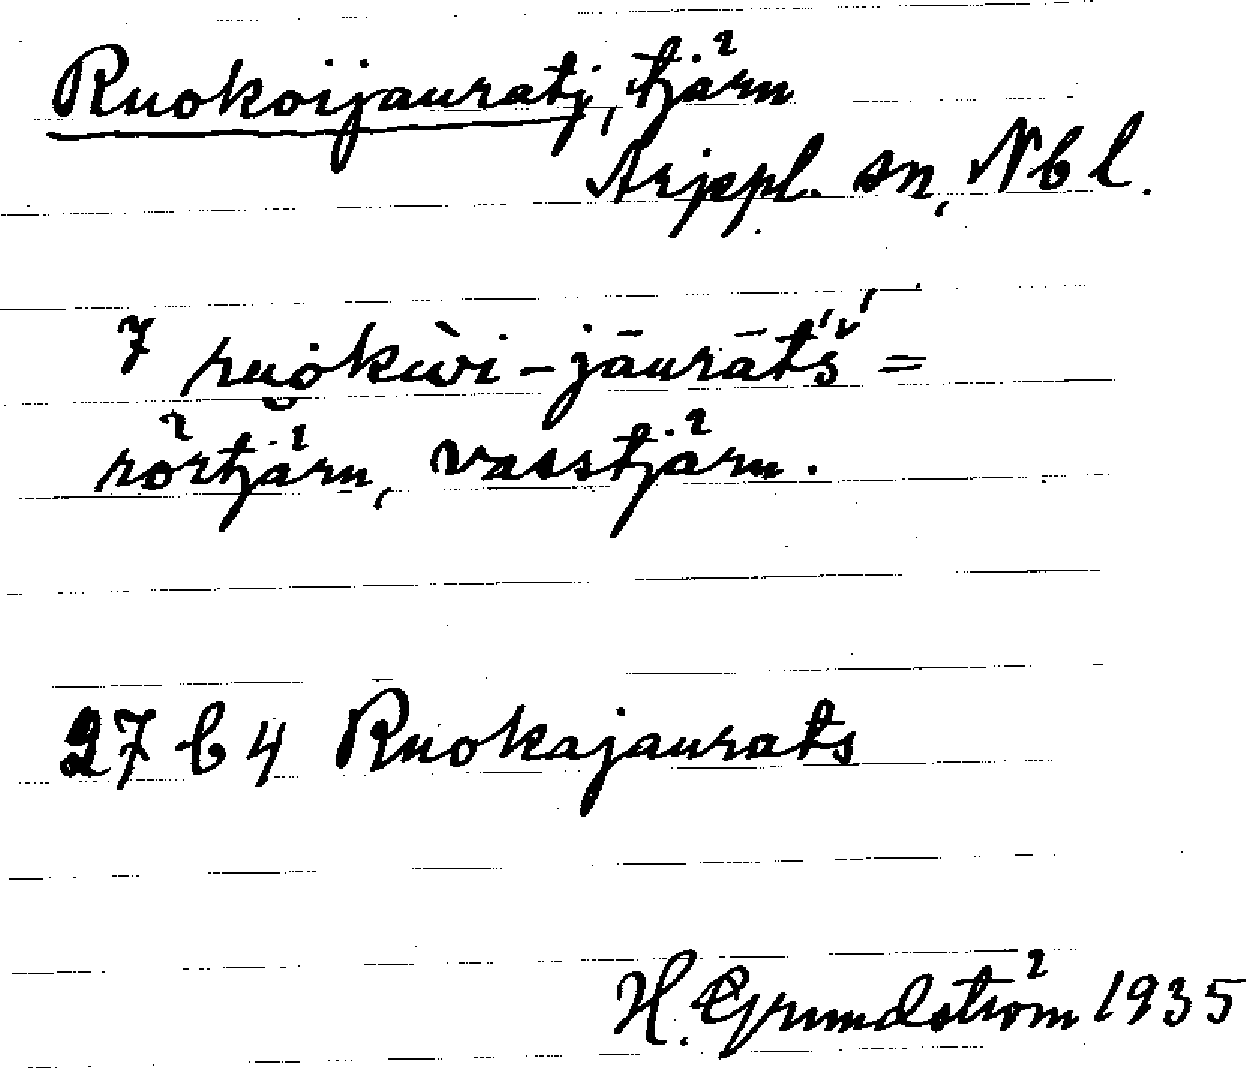 Ruokoijauratj, tjärn
Arjepl. sn, Nbl.
7 ruo̮kẁi-jāurāt́š́ =
rörtjärn, vasstjärn.
27 b 4 Ruokajaurats
H. Grundström 1935